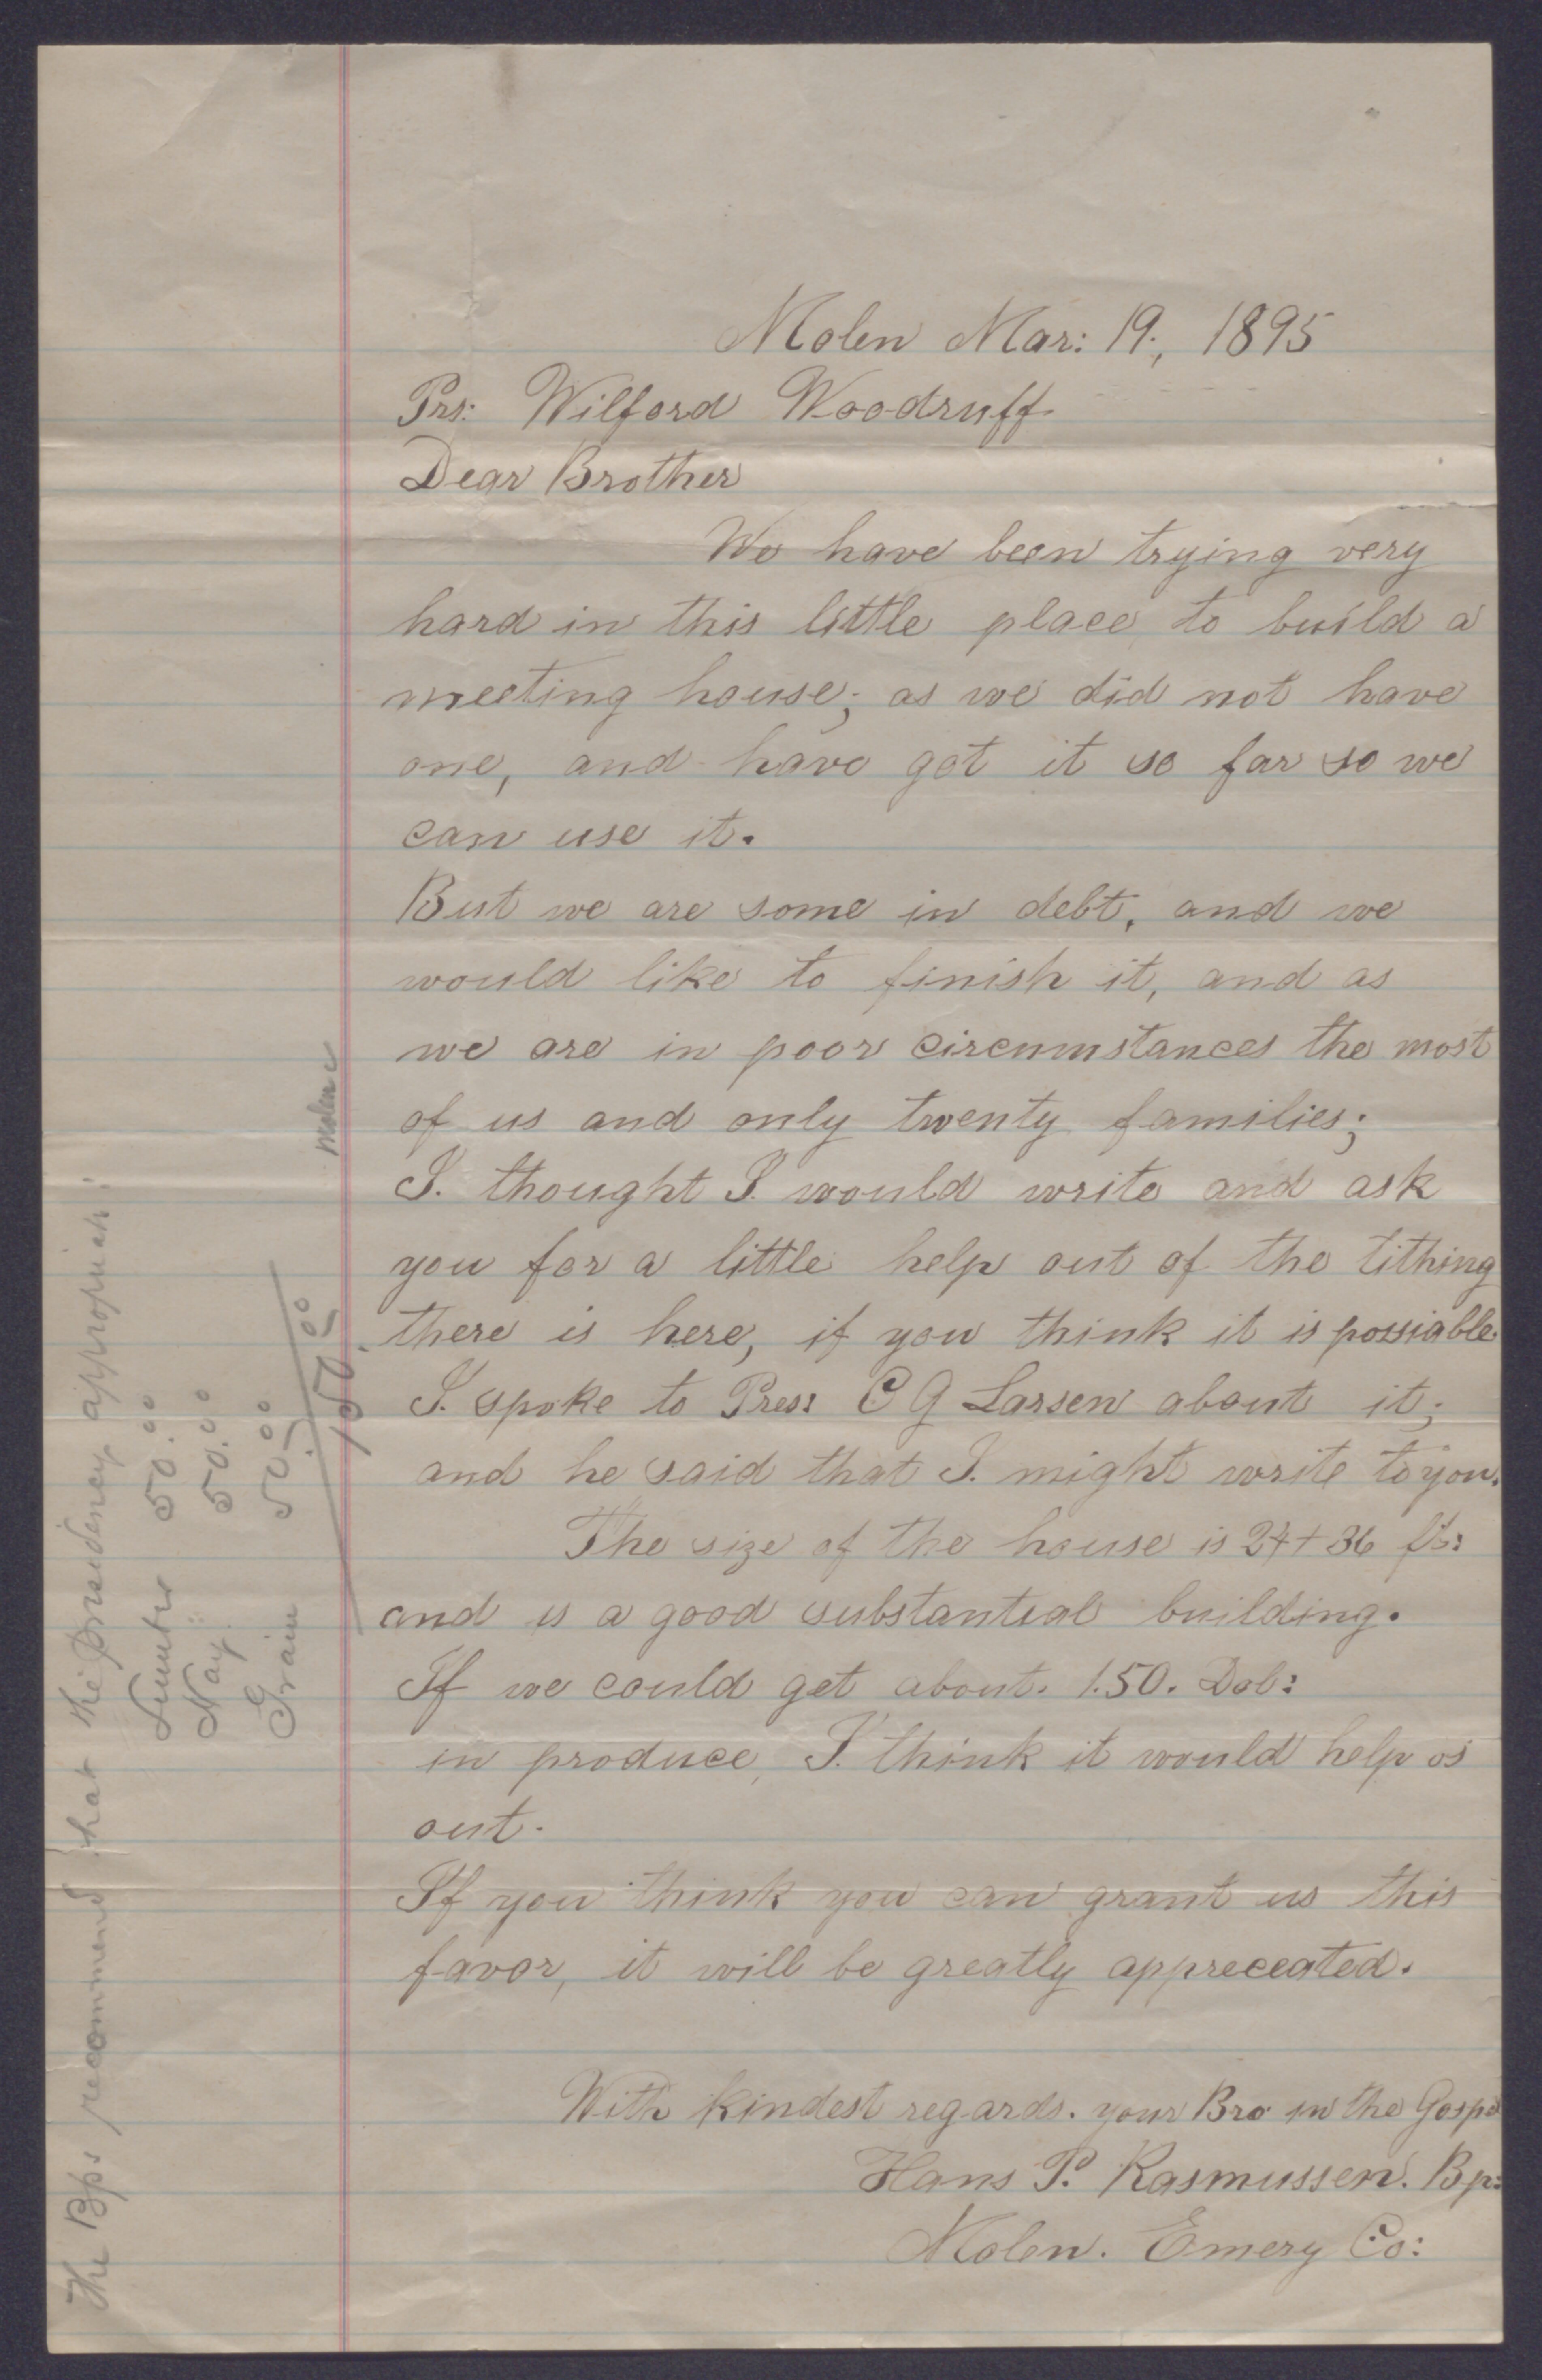 Molen Mar: 19., 1895
Prs: Wilford Woodruff
Dear Brother
We have been trying very
hard in this little place to build a
meeting house; as we did not have
one, and have got it so far so we
can use it.
But we are some in debt, and we
would like to finish it, and as
we are in poor circumstances the most
of us and only twenty families;
I. thought I. would write and ask
you for a little help out of the tithing
there is here, if you think it is possiable.
I. spoke to Press C G Larsen about it;
and he said that I. might write to you.
The size of the house is 24+36 ft:
and is a good substantial building.
If we could get about. 150. Dol:
in produce, I. think it would help os
out.
If you think you can grant us this
favor, it will be greatly appreceated.
With kindest regards. your Bro in the Gospel
Hans P. Rasmussen. Bp:
Molen. Emery Co:
The Bps recommend that the Presidency appropriate:
Lumber 50.00
Hay 50.00
Grain 50.00
150.00
Molen